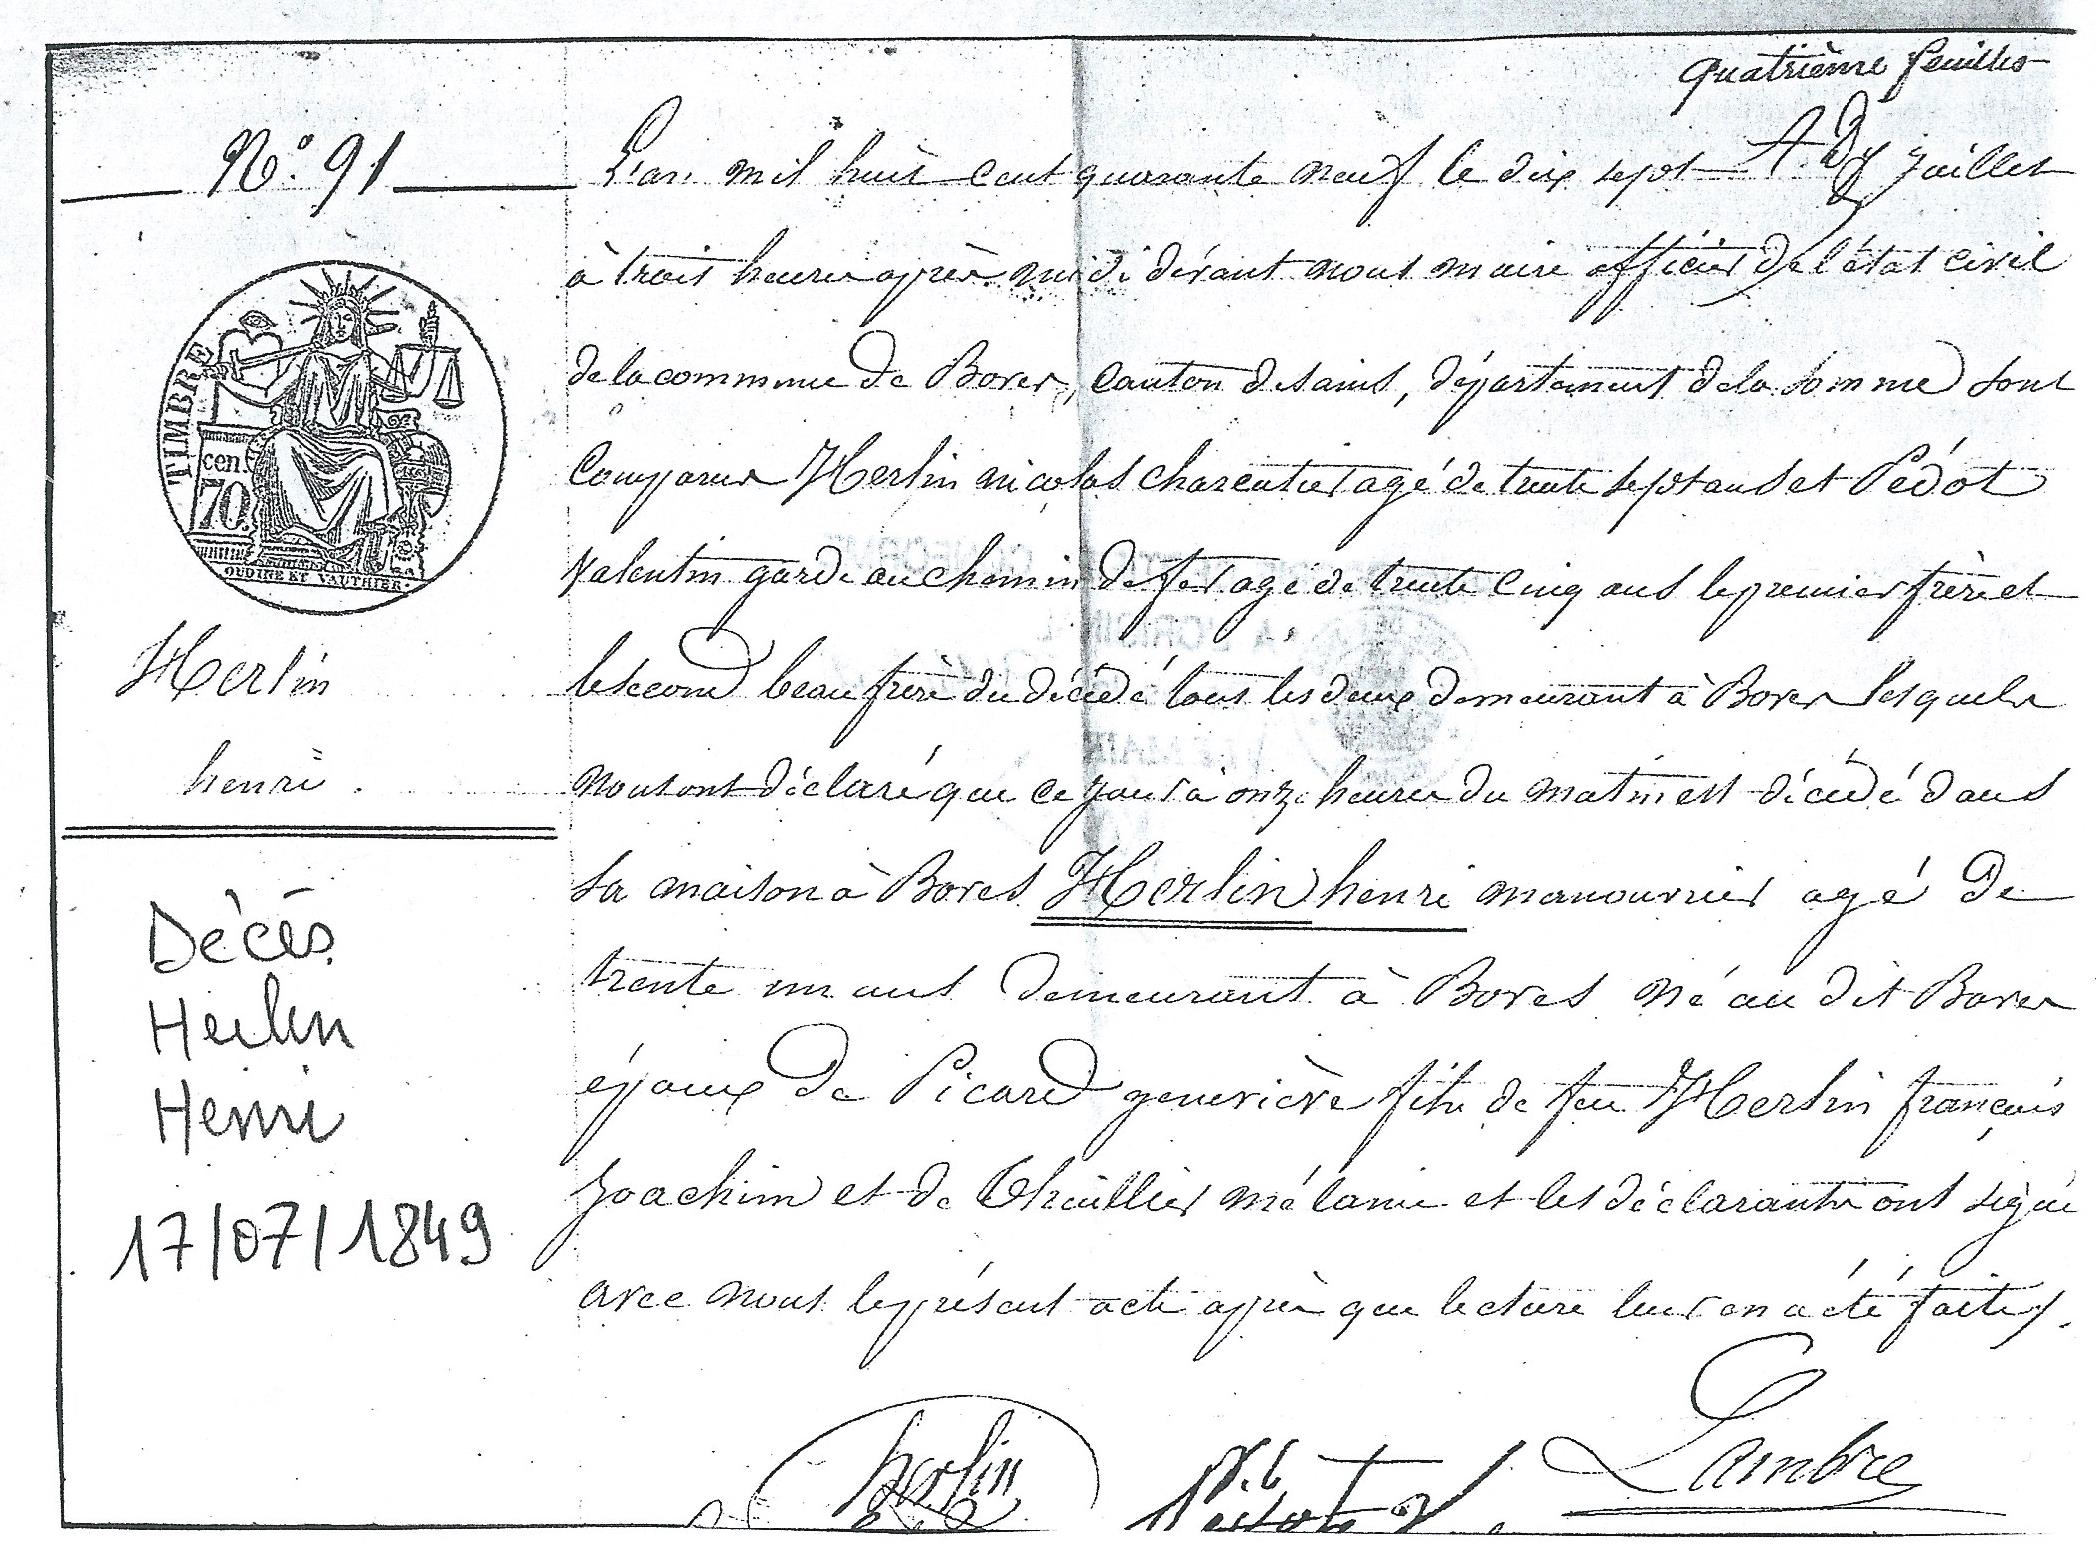 quatrième feuilles
N° 91
L'an mil huit cent quarante neuf le dix sept juillet
à trois heures après midi dévant nous maire officier de l'état civil
de la commune de Boves, canton de sains, département de la Somme sont
Comparus Herlin nicolas charcutier agé de trente sept ans et Pédot
Valentin garde au chemin de fer agé de trente cinq ans le premier frère et
le second beau frère du décédé tous les deux demeurant à Boves Lesquels
nous ont déclaré que ce jour à onze heures du matin est décédé dans
sa maison à Boves Herlin henri manouvrier agé de
trente un ans demeurant à Boves né au dit Boves
époux de Picard geneviève fils de feu Herlin françois
Joachim et de Thuillier mélanie et les déclarants ont signé
avec nous le présent acte après que lecture leur en a été faite
TIMBRE
70 cen.
OUDINE ET VAUTHIER
Herlin
henri.
Décès
Herlin
Henri
17/07/1849
herlin
Lambre